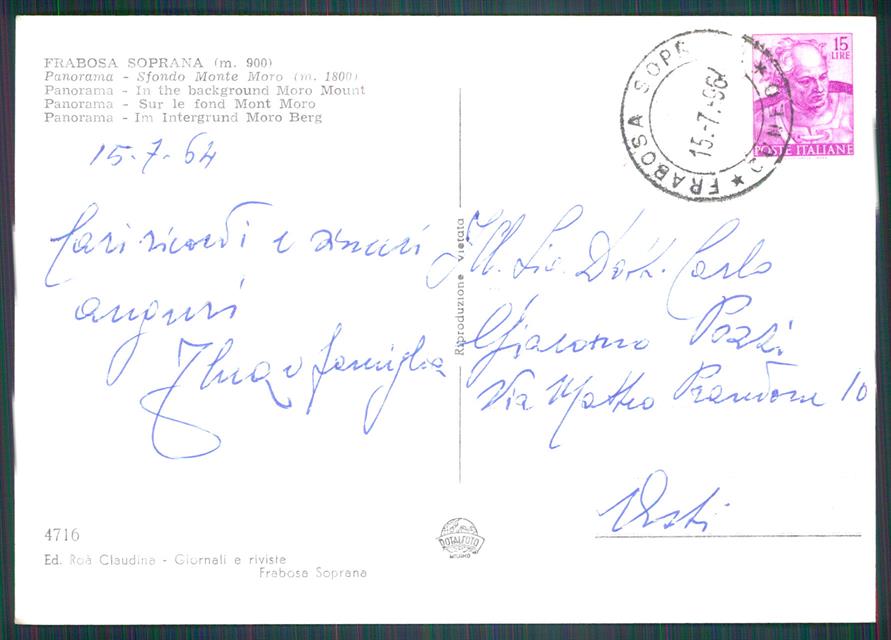 FRABOSA SOPRANA (m. 900)
Panorama - Sfondo Monte Moro (m. 1800)
Panorama - In the background Moro Mount
Panorama - Sur le fond Mont Moro
Panorama - Im Intergrund Moro Berg
15-7-64
Cari ricordi e sinceri
auguri
e famiglia
4716
Ed. Roà Claudina - Giornali e riviste
Frabosa Soprana
Riproduzione vietata
ROTALFOTO
MILANO
FRABOSA SOPR
CUNEO
15.-7.-96
15
LIRE
POSTE ITALIANE
Ill. Sig. Dott. Carlo
Giacomo Pozzi
Via Matteo Prandone 10
Asti